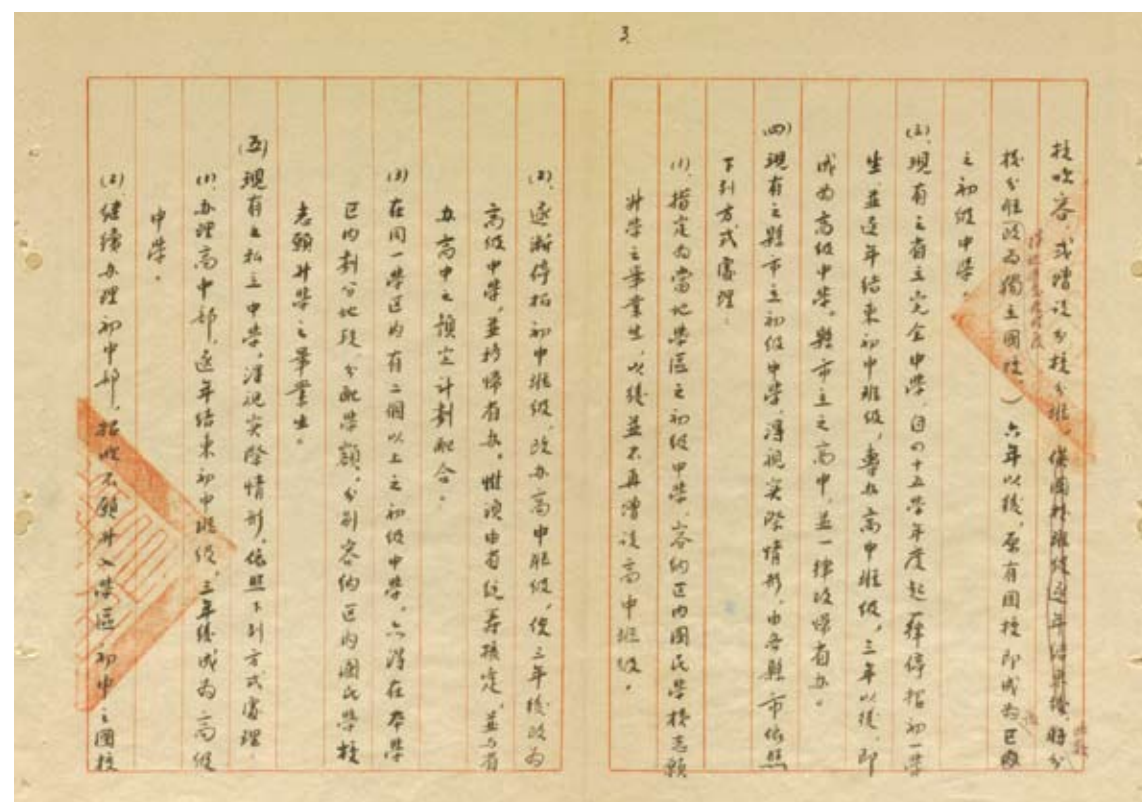 3
校收容，或增設分校分班。俟國校班級逐年結束後，將分
校分班改為獨立國校，）六年以後，原有國校即成為區內
之初級中學。
(三)現有之省立完全中學，自四十五學年度起一律停招初一學
生並逐年結束初中班級，專辦高中班級，三年以後，即
成為高級中學。縣市立之高中，並一律改歸省办。
(四)現有之縣市立初級中學，得視实際情形，由各縣市依照
下列方式處理：
(1)、指定為當地學區之初級中學，容納区内國民學校志願
升學之畢業生，以後並不再增設高中班級。
(2)、逐漸停招初中班級，改办高中班級，俟三年後改为
高級中學，並移歸省办。惟須由省統籌核定，並与省
办高中之預定计劃配合。
(3)在同一學区内有二個以上之初級中學，亦得在本學
区内劃分地段，分配學額，分别容納区内國民學校
志願升學之畢業生。
(五)現有之私立中學，得視实際情形，依照下列方式處理：
(1)、办理高中部，逐年结束初中班級，三年後成为高級
中學。
(2)、继續办理初中部，招收不願升入學區初中之國校